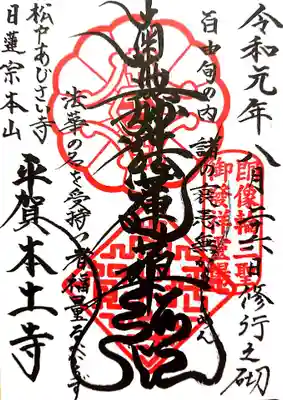 令和元年八月廿三日修行之砌
百由旬の内諸の衰患無からしめん
南無妙法蓮華経
法華の名を受持つ者福量るべからず
松戸あじさい寺
日蓮宗本山
平賀本土寺